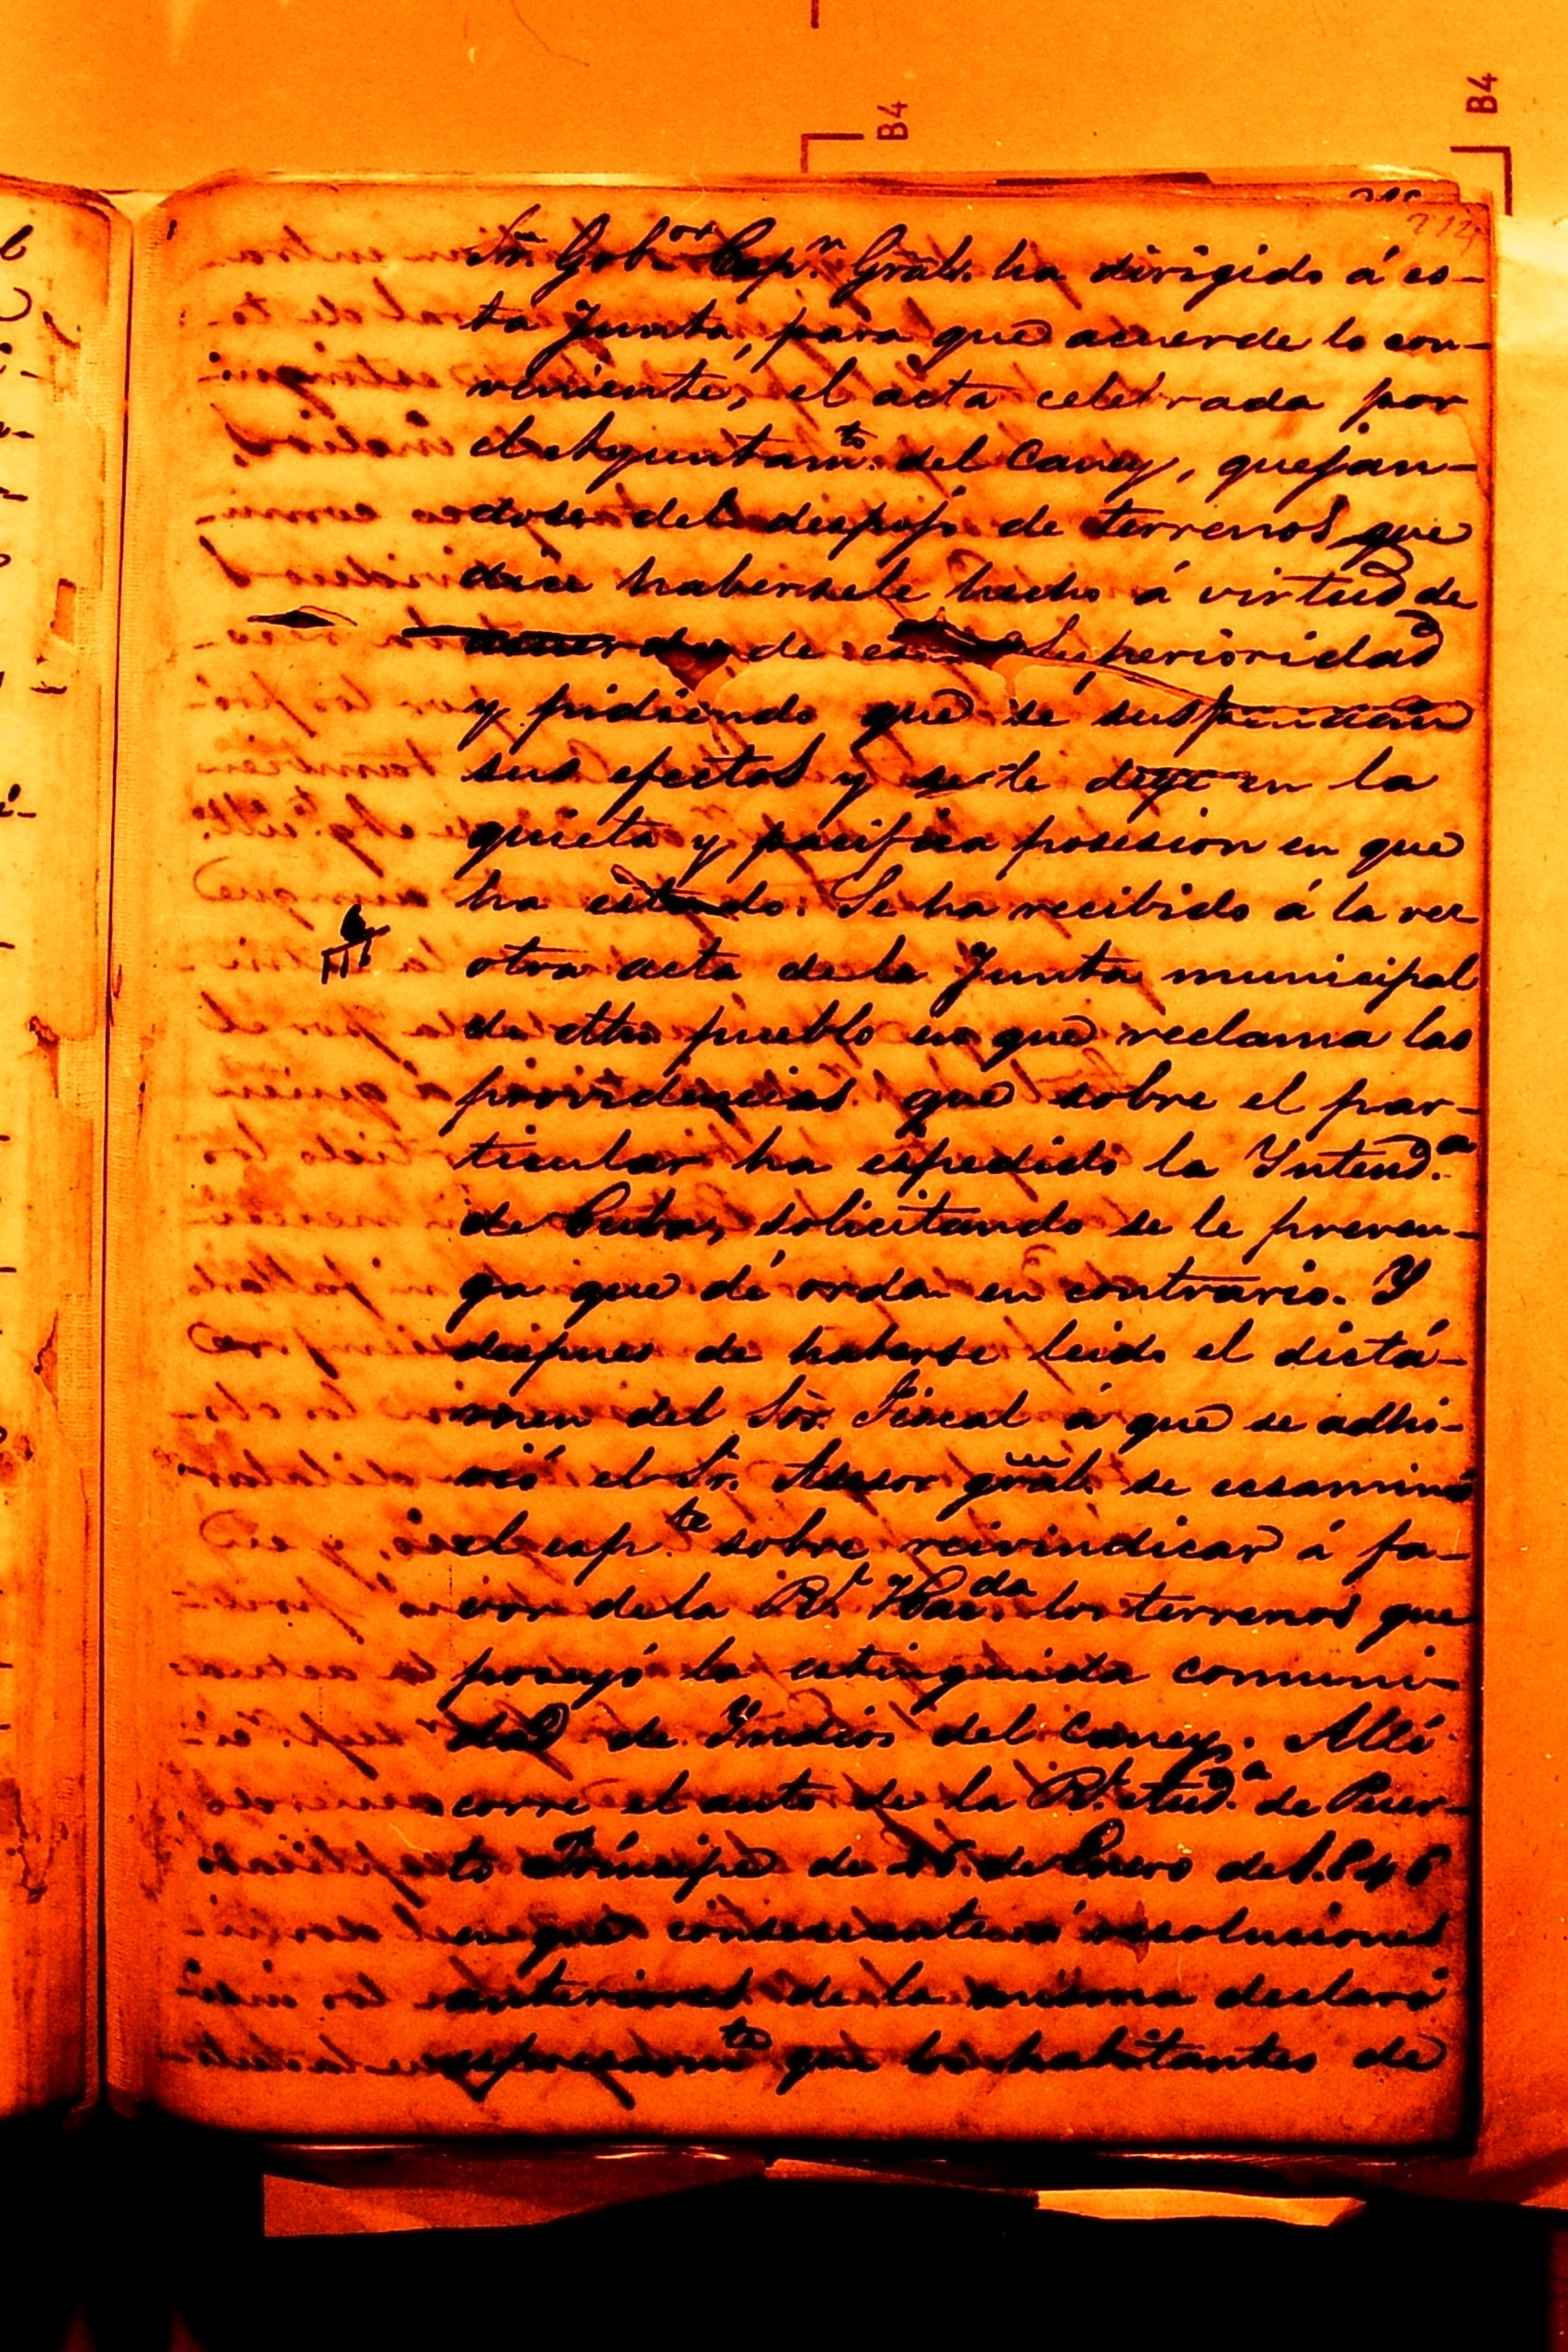 B4
B4
212
Sr. Gobor. Capn. Gral. ha dirigido á es-
ta Junta, para que acuerde lo con-
veniente, el acta celebrada por
el Ayuntamto. del Caney, quejan-
dose del despojo de terrenos que
dice habersele hecho á virtud de
acuerdo de esta Superioridad
y pidiendo que se suspendan
sus efectos y se le deje en la
quieta y pacifica posesion en que
ha estado. Se ha recibido á la vez
otra acta de la Junta municipal
de dho. pueblo en que reclama las
providencias que sobre el par-
ticular ha espedido la Intenda.
de Cuba, solicitando se le preven-
ga que dé orden en contrario. Y
despues de haberse leido el dictá-
men del Sòr. Fiscal á que se adhi-
rió el Sr. Asesor gral. se ecsaminó
el espte. sobre reivindicar á fa-
vor de la Rl. Hacda. los terrenos que
poseyó la estinguida comuni-
dad de Yndios del Caney. Allí
corre el auto de la Rl. Auda. de Puer-
to Príncipe de de Enero de 1.846
en que consecuente á resoluciones
anteriores de la misma declaró
espresamte. que los habitantes de